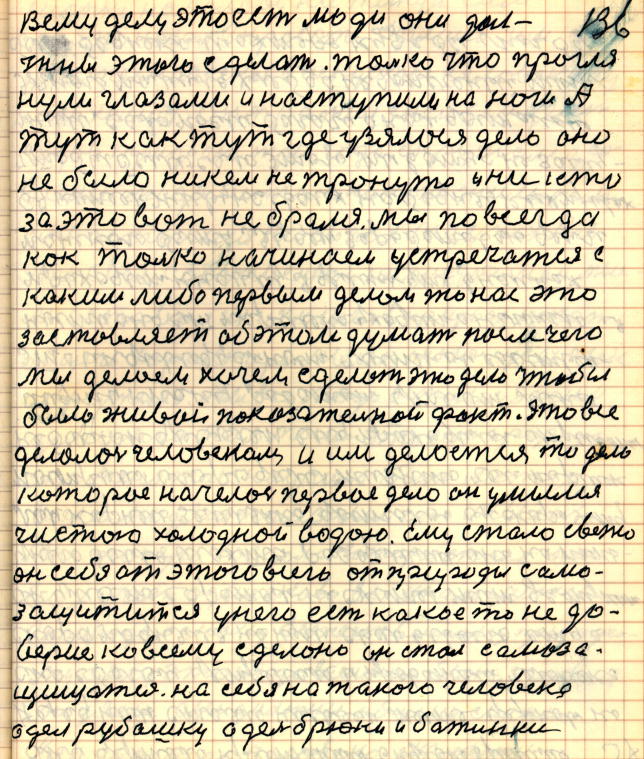 вему делу, это ест люди они дол- 136
тны этого сделат. толко что прогля
нули глазами и наступили, на ноги А
тут как тут где узялося дело оно
не было никем не тронуто и ни хто
за это вот не браля. мы повсегда
кок толко начинаем устречатся с
каким либо первым делом то нас это
застовляет об этом думат после чего
мы делоем хочем, сделот это дело чтобы
было живой показателной факт. это все
делолоя человекам, и им делоется то дело
которое начелоя первое дело он умылия
чистою холодной водою. ему стало свежо
он себя от этого всего от природы само-
защитится у него ест какоето не до-
верие ко всему сделоно он стал самоза-
щищатся. на себя на такого человека
одел рубашку одел брюки и батинки